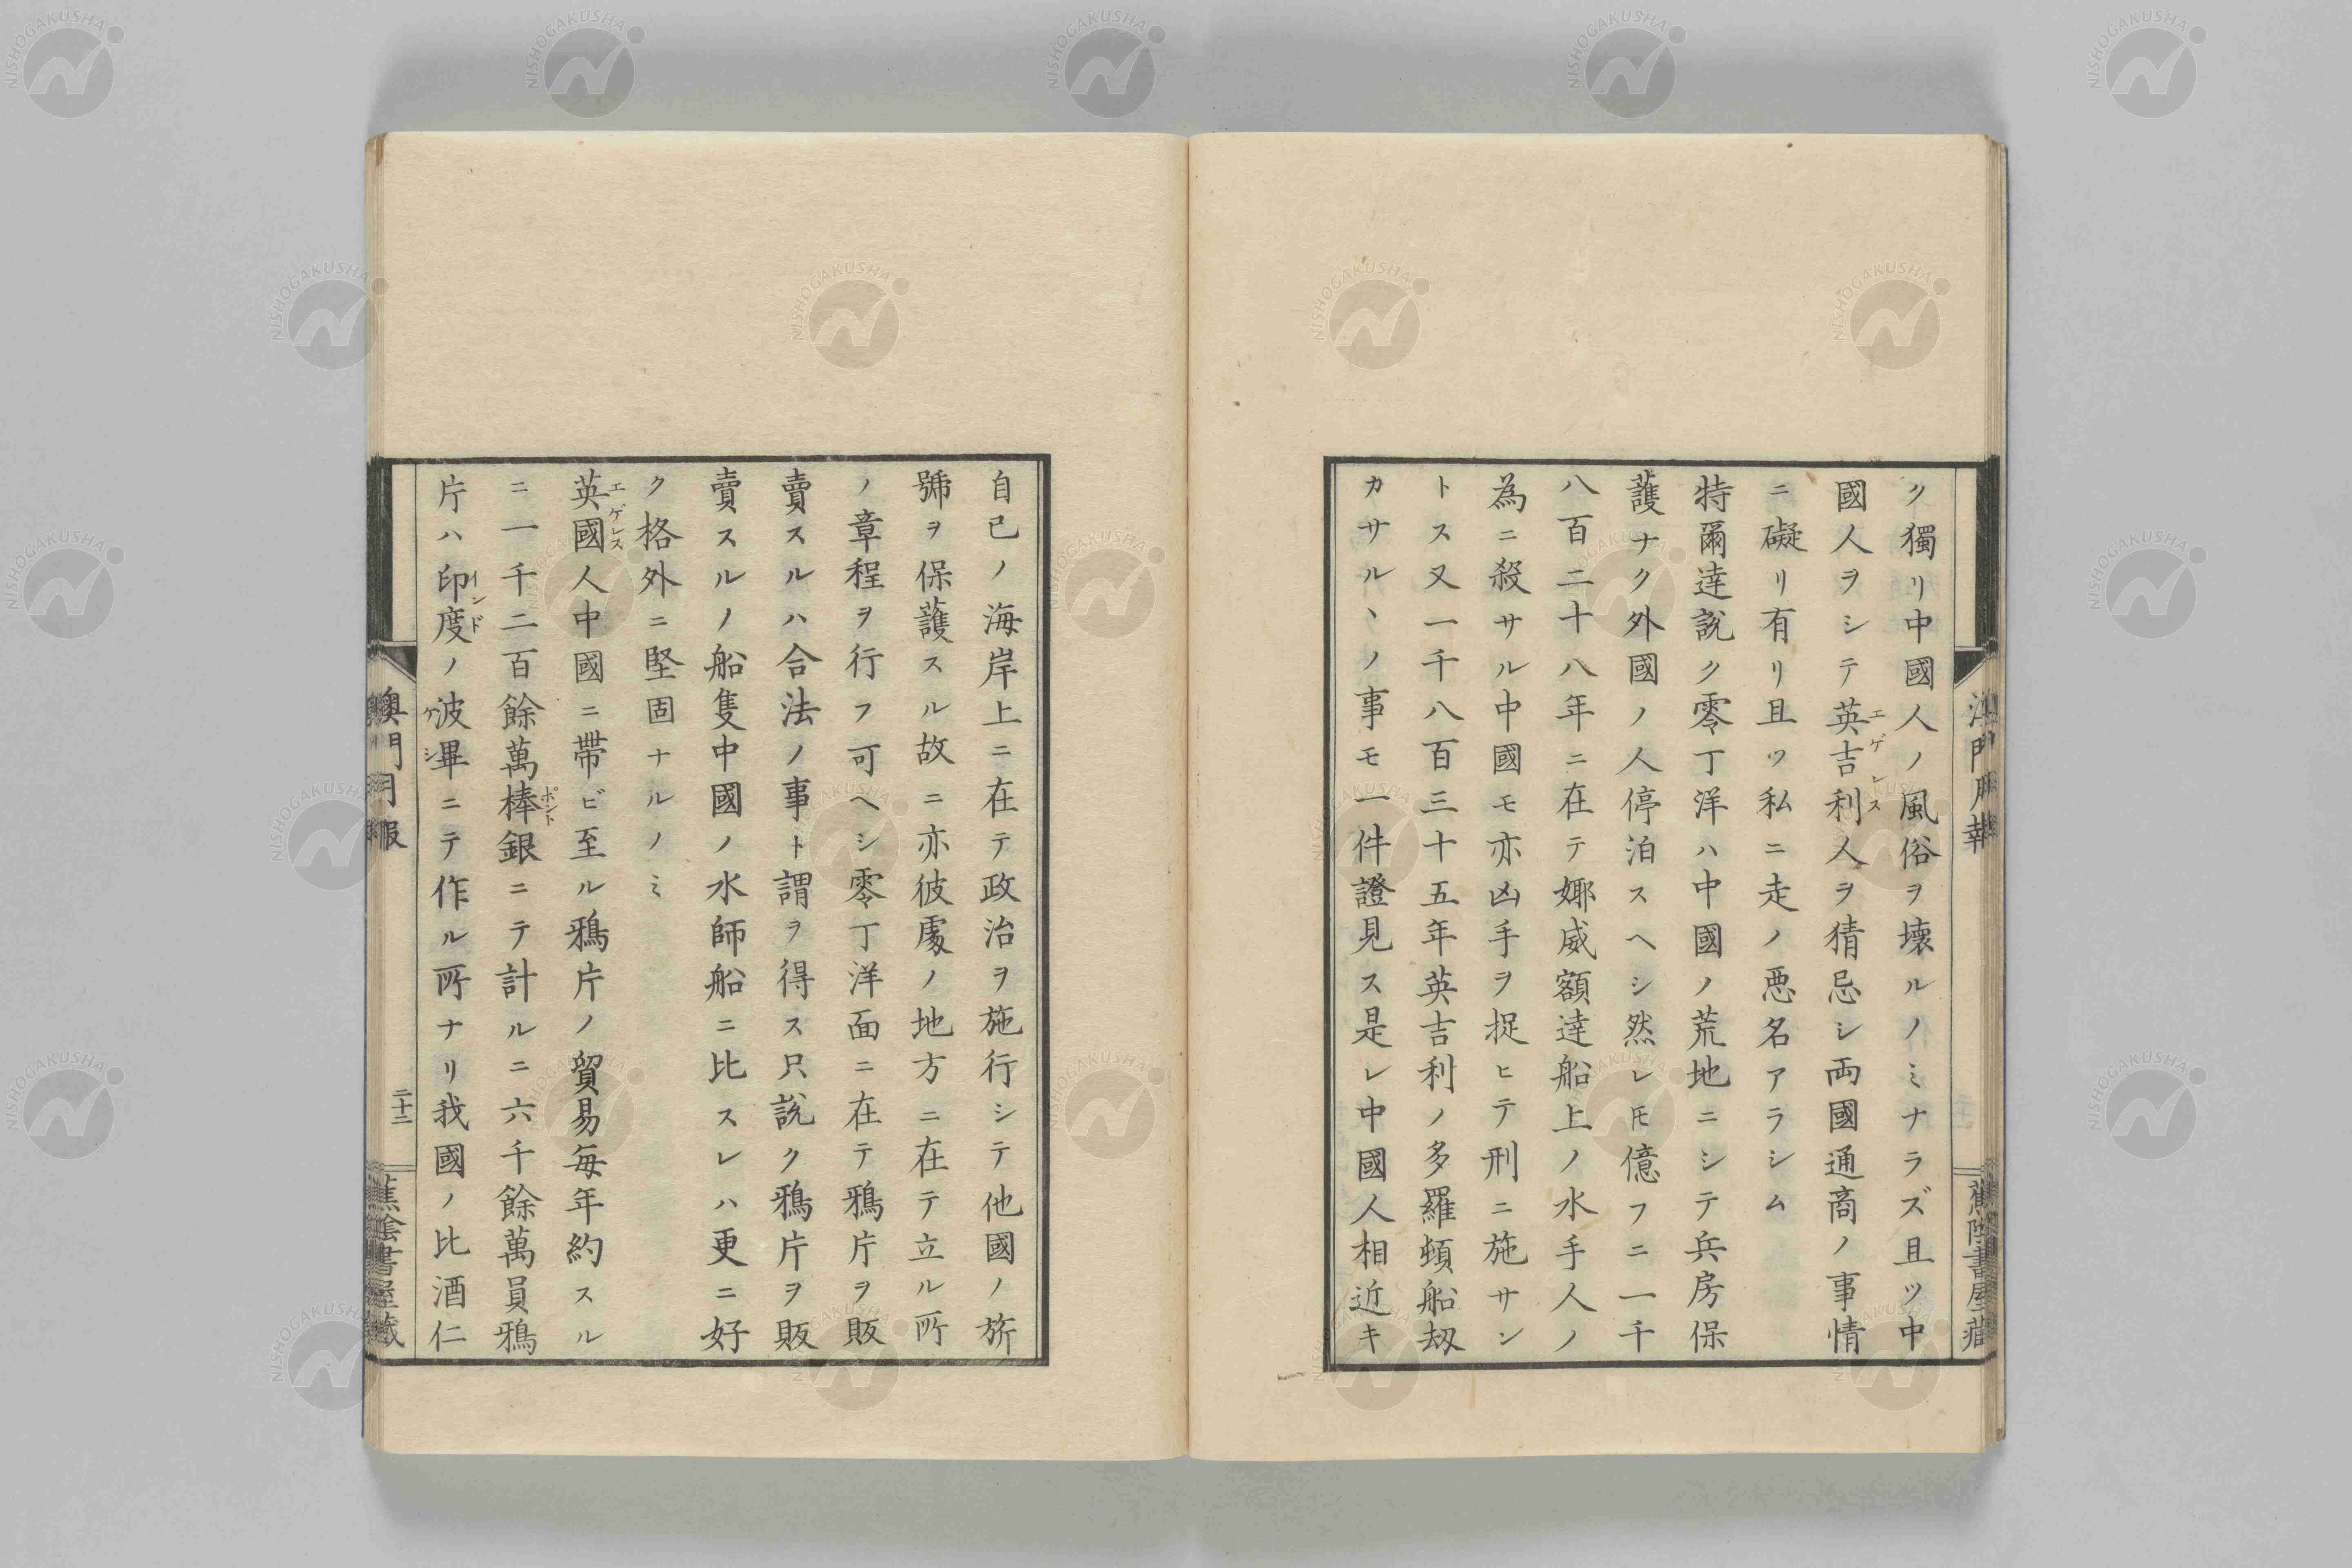 ク獨リ中國人ノ風俗ヲ壊ルノミナラズ且ツ中
國人ヲシテ英吉利人ヲ猜忌シ両國通商ノ事情
エゲレス
ニ礙リ有リ且ツ私ニ走ノ悪名アラシム
特爾逹説ク零丁洋ハ中國ノ荒地ニシテ兵房保
護ナク外國ノ人停泊スヘシ然レ𪜈億フニ一千
八百二十八年ニ在テ㛿威額逹船上ノ水手人ノ
為ニ殺サル中國モ亦凶手ヲ捉ヒテ刑ニ施サン
トス又一千八百三十五年英吉利ノ多羅頓船刼
カサルヽノ事モ一件證見ス是レ中國人相近キ
自己ノ海岸上ニ在テ政治ヲ施行シテ他國ノ旂
號ヲ保護スル故ニ亦彼處ノ地方ニ在テ立ル所
ノ章程ヲ行フ可ヘシ零丁洋面ニ在テ鴉片ヲ販
賣スルハ合法ノ事ト謂ヲ得ス只説ク鴉片ヲ販
賣スルノ船隻中國ノ水師船ニ比スレハ更ニ好
ク格外ニ堅固ナルノミ
英國人中國ニ帶ビ至ル鴉片ノ貿易毎年約スル
エゲレス
ニ一千二百餘萬棒銀ニテ計ルニ六千餘萬員鴉
ポント
片ハ印度ノ波畢ニテ作ル所ナリ我國ノ比酒仁
インド
ケシ
澳門月報
二十二
蕉陰書屋藏
NISHOGAKUSHA